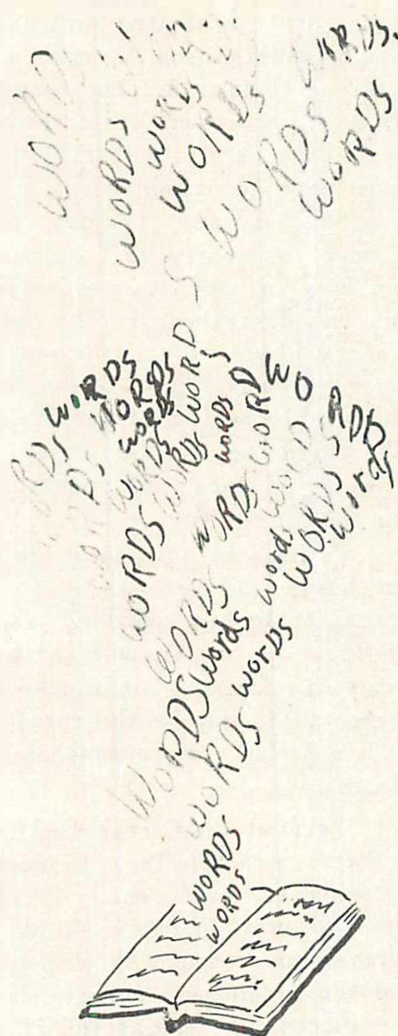 WORD
WORDS
WORDS
WORDS
WORDS
WORDS
WORDS
WORDS
WORDS
WORDS
WORDS
WORDS
WORDS
WORDS
WORDS
WORD
WORDS
WORDS
WORDS
WORDS
words
WORDS
words
WORDS
words
WORDS
words
WORDS
WORDS
WORDS